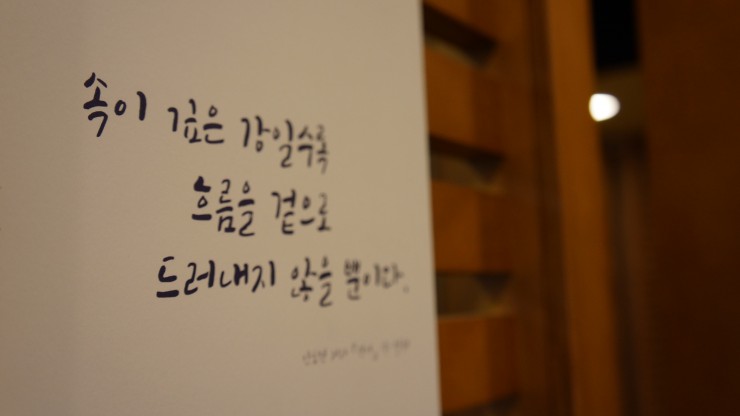 속이 깊은 강일수록
흐름을 겉으로
드러내지 않을 뿐이다.